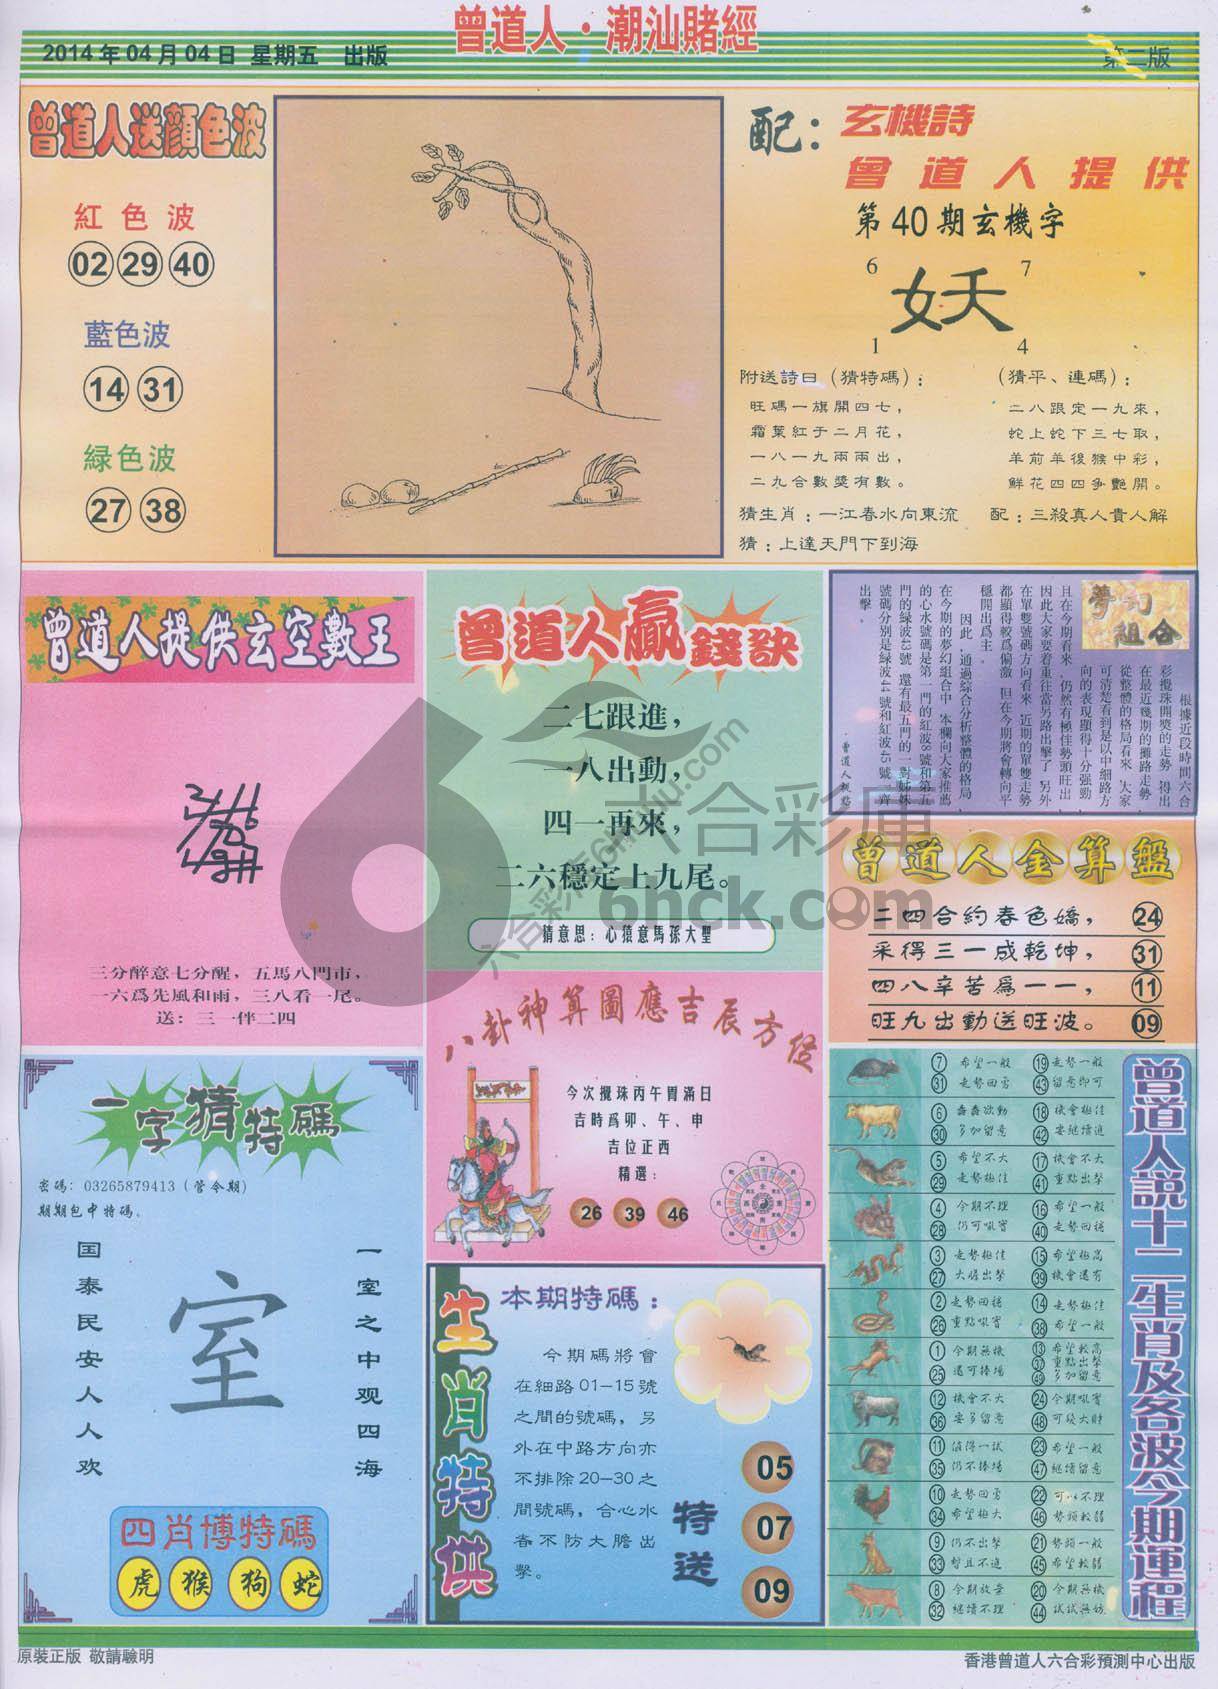 曾道人·潮汕賭經
2014年04月04日 星期五 出版
第二版
曾道人送顔色波
紅色波
02 29 40
藍色波
14 31
緑色波
27 38
配：玄機詩
曾道人提供
第40期玄機字
6 7
妖
1 4
附送詩曰（猜特碼）：
旺碼一旗開四七，
霜葉紅于二月花，
一八一九兩兩出，
二九合數獎有數。
（猜平、連碼）：
二八跟定一九來，
蛇上蛇下三七取，
羊前羊後猴中彩，
鮮花四四爭艷開。
猜生肖：一江春水向東流
配：三殺真人貴人解
猜：上達天門下到海
曾道人提供玄空數王
三分醉意七分醒，五馬八門市，
一六爲先風和雨，三八看一尾。
送：三一伴二四
曾道人贏錢訣
二七跟進，
一八出動，
四一再來，
二六穩定上九尾。
猜意思：心猿意馬孫大聖
夢幻組合
根據近段時間六合
彩攪珠開獎的走勢，得出
在最近幾期的攤路走勢
從整體的格局看來，大家
可清楚看到是以中細路方
向的表現顯得十分强勁，
且在今期看來，仍然有極佳勢頭旺出，
因此大家要着重往當另路出擊了，另外
在單雙號碼方向看來，近期的單雙走勢
都顯得較爲偏激，但在今期將會轉向平
穩開出爲主。
因此，通過綜合分析整體的格局
在今期的夢幻組合中，本欄向大家推薦
的心水號碼是第一門的紅波8號和第五
門的緑波43號，還有最五門的一對姊妹
號碼分別是緑波44號和紅波45號一齊
出擊。
曾道人金算盤
二四合約春色嬌， 24
采得三一成乾坤， 31
四八辛苦爲一一， 11
旺九出動送旺波。 09
八卦神算圖應吉辰方位
今次攪珠丙午胃滿日
吉時爲卯、午、申
吉位正西
精選：
26 39 46
一字猜特碼
密碼：03265879413（管今期）
期期包中特碼。
国泰民安人人欢
室
一室之中观四海
四肖博特碼
虎 猴 狗 蛇
生肖特供
本期特碼：
今期碼將會
在細路01—15號
之間的號碼，另
外在中路方向亦
不排除20—30之
間號碼，合心水
者不防大膽出
擊。
特送
05
07
09
曾道人説十二生肖及各波今期運程
7 希望一般 19 走勢一般
31 走勢回勇 43 留意即可
6 蠢蠢欲動 18 機會極佳
30 多加留意 42 要繼續追
5 希望不大 17 機會不大
29 走勢極佳 41 重點出擊
4 今期不理 16 希望一般
28 仍可吼實 40 走勢回穩
3 走勢極佳 15 希望極高
27 大膽出擊 39 機會還有
2 走勢回穩 14 走勢極佳
26 重點吼實 38 希望一般
1 今期無機 13 希望較高
25 還可捧場 37 重點出擊
49 多加留意
12 機會不大 24 今期吼實
36 要多留意 48 可發大財
11 值得一試 23 希望一般
35 仍不捧場 47 繼續留意
10 走勢回勇 22 可以不理
34 希望極大 46 勢頭較弱
9 仍不出擊 21 勢頭一般
33 暫且不追 45 希望較弱
8 今期放棄 20 今期無機
32 繼續不理 44 試試無妨
原裝正版 敬請驗明
香港曾道人六合彩預測中心出版
六合彩庫
6hck.com